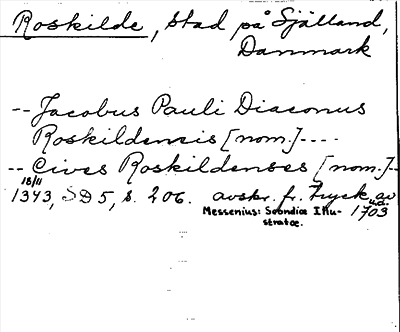 Roskilde, stad på Själland,
Danmark
-- Jacobus Pauli Diaconus
Roskildensis [nom.]----
-- Cives Roskildenses [nom.]--
18/11
1343, SD5, s. 206. avskr. fr. Tryck av
Messenius: Scondia Illu- 1703
stratæ.